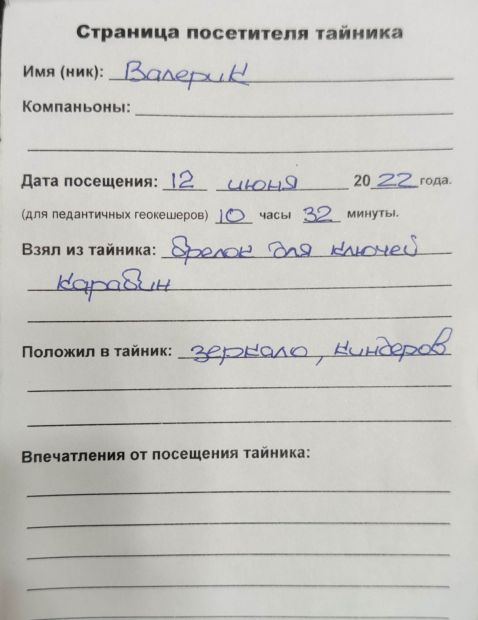 Страница посетителя тайника
Имя (ник): Валерик
Компаньоны:
Дата посещения: 12 июня 2022 года.
(для педантичных геокешеров) 10 часы 32 минуты.
Взял из тайника: брелок для ключей
карабин
Положил в тайник: зеркало, киндеров
Впечатления от посещения тайника: